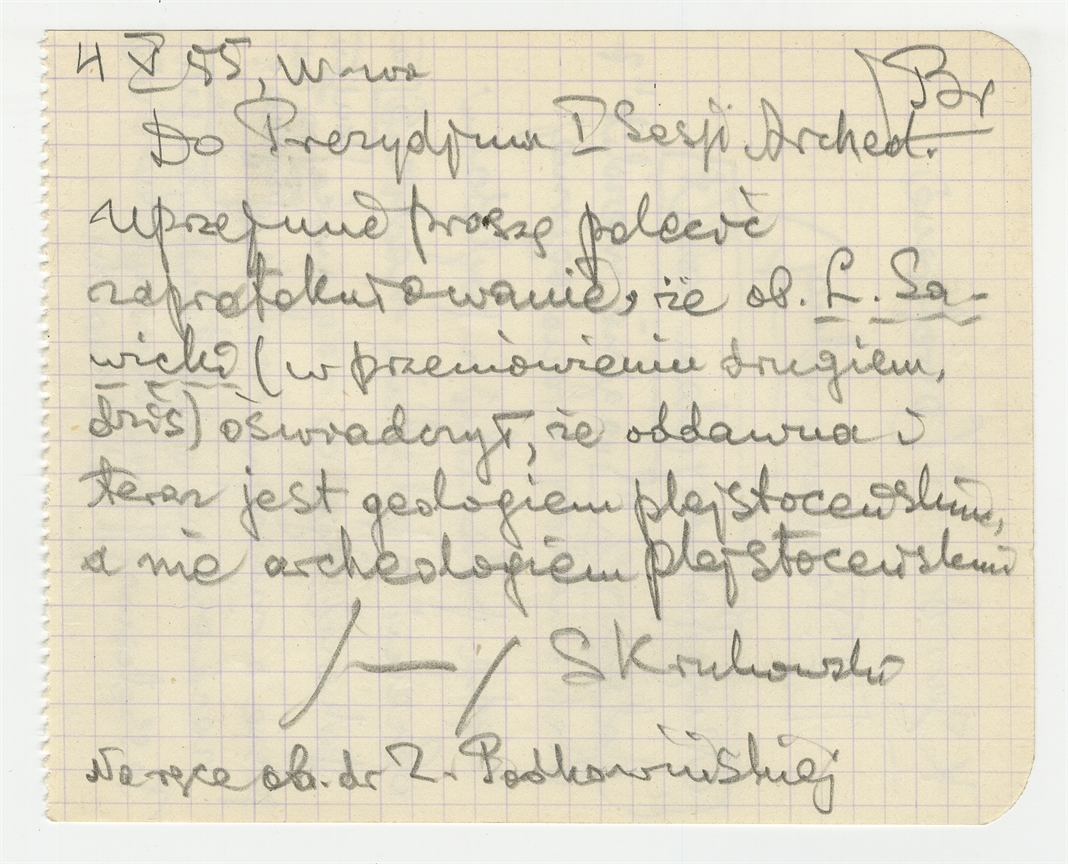 4 V 55, W-wa
Br
Do Prezydjum I Sesji Archeol.
uprzejmie proszę polecić
zaprotokułowanie, że ob. L. Sa-
wicki (w przemówieniu drugiem,
dziś) oświadczył, że oddawna i
teraz jest geologiem plejstoceńskim,
a nie archeologiem plejstoceńskim
/—/ S Krukowski
Na ręce ob. dr Z. Podkowińskiej